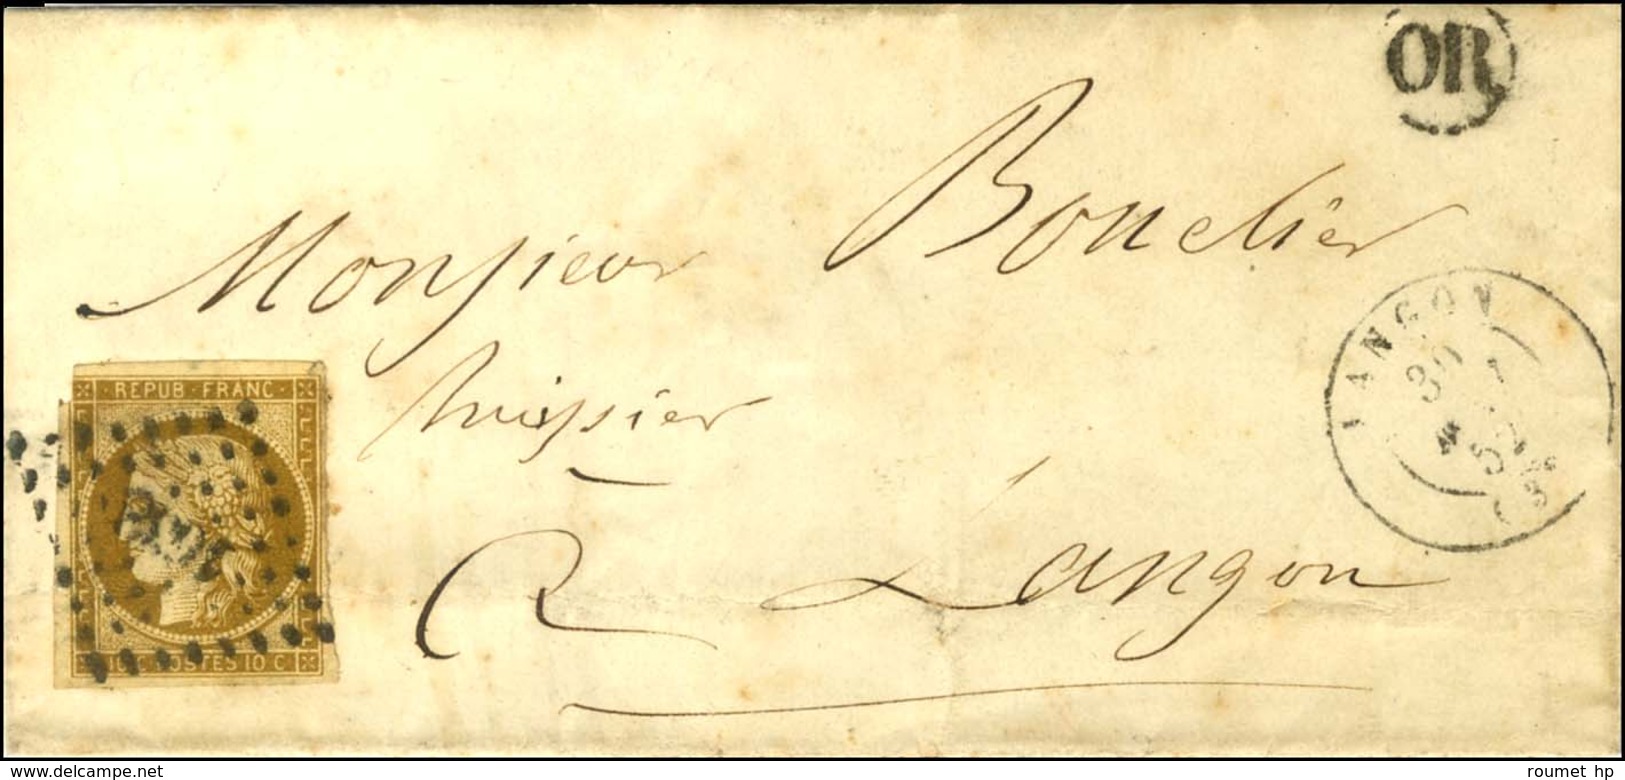 OR
Monsieur Bouclier
LANGON
30
huissier
REPUB·FRANC·
a Langon
10 C POSTES 10 C
www.delcampe.net
roumet hp